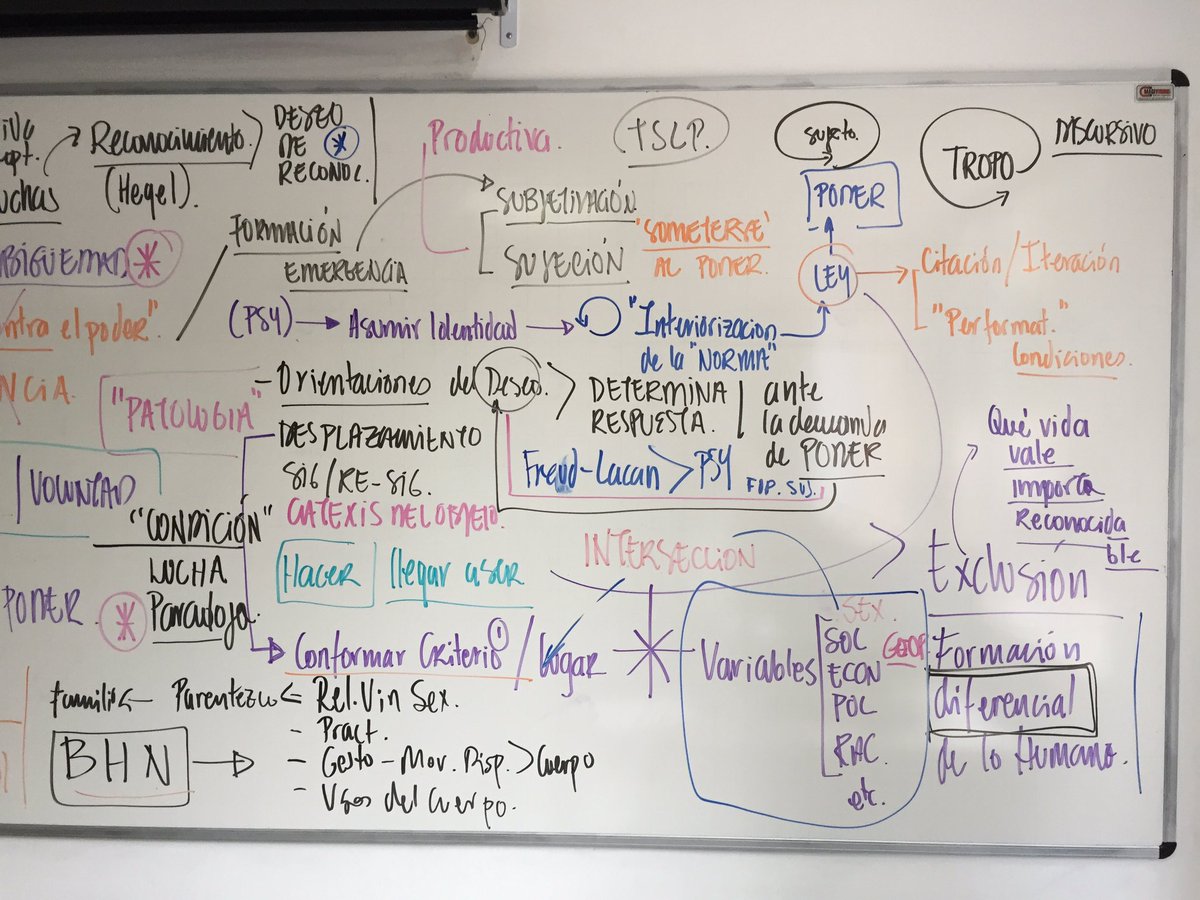 Reconocimiento.
(Hegel).
DESEO
DE *
RECONOC.
Productiva.
TSLP.
sujeto.
TROPO
DISCURSIVO
uchas
FORMACIÓN
EMERGENCIA
SUBJETIVACIÓN
SUJECIÓN
"SOMETERSE"
AL PODER.
PODER
LEY
Citación/Iteración
"Performat."
Condiciones.
*
ntra el poder".
(PSY) → Asumir Identidad →
"Interiorizacion
de la "NORMA"
NCIA.
"PATOLOGIA"
- Orientaciones del Deseo. >
DETERMINA
RESPUESTA.
ante
la demanda
de PODER
DESPLAZAMIENTO
SIG/RE-SIG.
Freud-Lacan > PSY
CATEXIS DEL OBJETO.
VOLUNTAD
"CONDICIÓN"
LUCHA
* Paradoja.
PODER
Hacer
llegar a ser
INTERSECCION
Qué vida
vale
importa
Reconocida
ble
Exclusión
Conformar Criterio / Lugar
Variables
SEX.
SOC
ECON
POL
RAC.
etc.
Formación
diferencial
de lo Humano.
Familia ← Parentezco < Rel. Vin Sex.
- Pract.
BHN → - Gesto - Mov. Disp. > Cuerpo
- Usos del cuerpo.